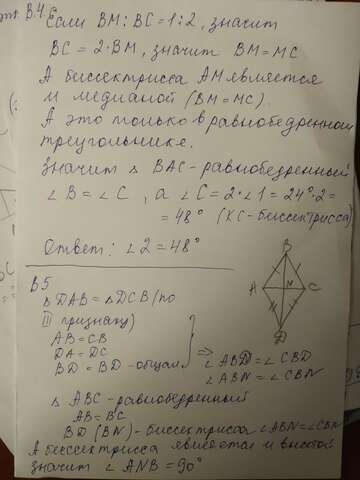 В.4.
Если BM:BC = 1:2, значит
BC = 2·BM, значит BM = MC
А биссектрисса AM является
и медианой (BM = MC).
А это только в равнобедренном
треугольнике.
Значит △ BAC - равнобедренный
∠B = ∠C, а ∠C = 2·∠1 = 24°·2 =
= 48° (KC - биссектрисса)
Ответ: ∠2 = 48°
В5
△DAB = △DCB (по
III признаку)
AB = CB
DA = DC
BD = BD - общая
⇒ ∠ABD = ∠CBD
∠ABN = ∠CBN
B
A N C
D
△ ABC - равнобедренный
AB = BC
BD (BN) - биссектрисса ∠ABN = ∠CBN
А биссектрисса является и высотой
значит ∠ANB = 90°